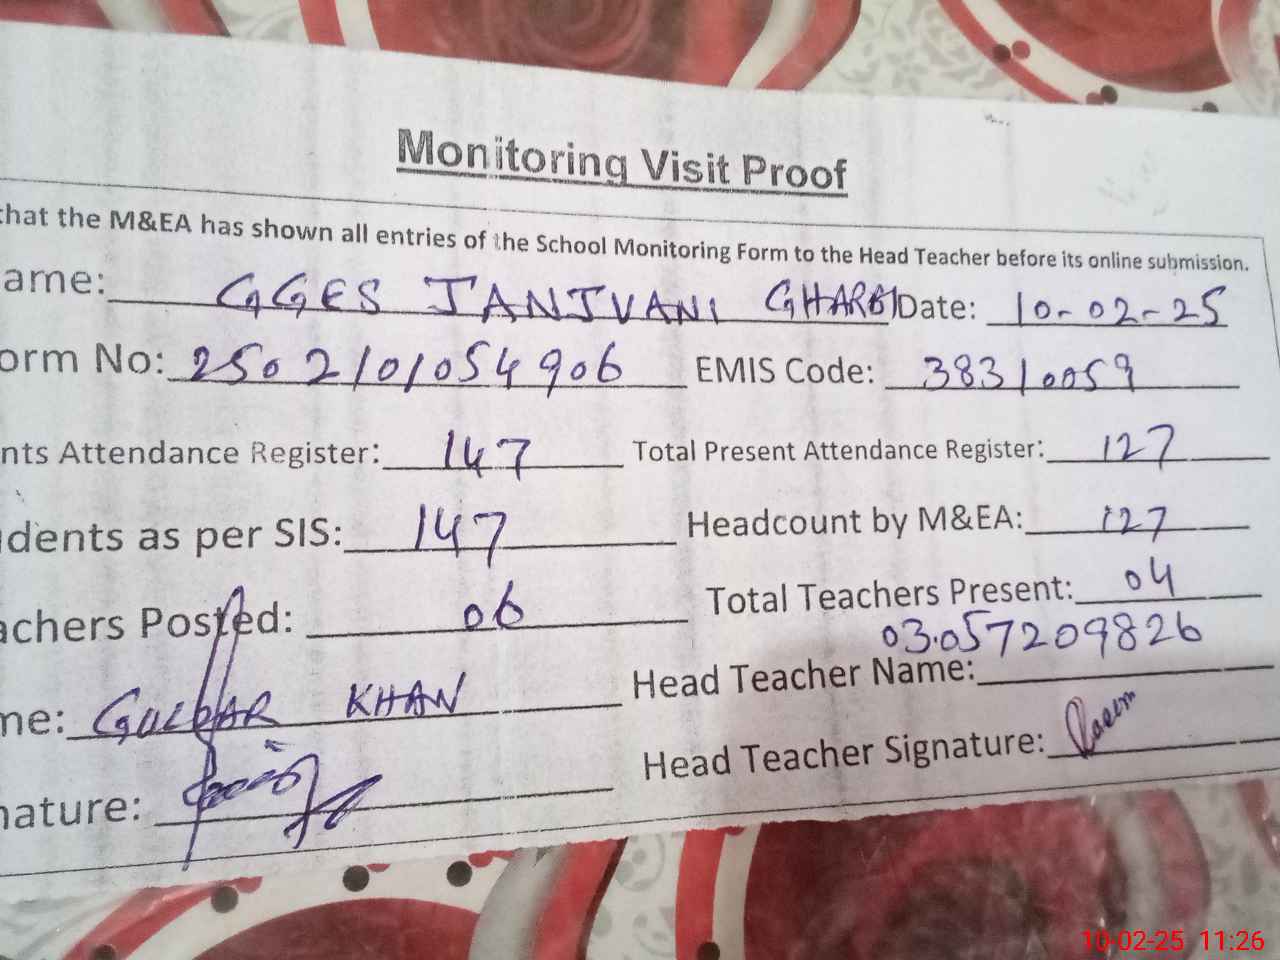 Monitoring Visit Proof
that the M&EA has shown all entries of the School Monitoring Form to the Head Teacher before its online submission.
ame: GGES JANJVANI GHARBI Date: 10-02-25
orm No: 2502101054906 EMIS Code: 38310059
nts Attendance Register: 147 Total Present Attendance Register: 127
dents as per SIS: 147 Headcount by M&EA: 127
achers Posted: 06 Total Teachers Present: 04
03057209826
me: GULBAR KHAN Head Teacher Name:
nature: Head Teacher Signature:
10-02-25 11:26